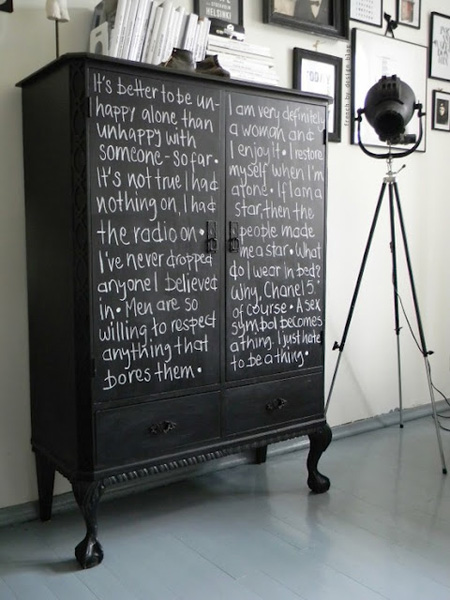 It's better to be un-
happy alone than
unhappy with
someone - so far •
It's not true I had
nothing on, I had
the radio on •
I've never dropped
anyone I believed
in • Men are so
willing to respect
anything that
bores them •
I am very definitely
a woman and
I enjoy it • I restore
myself when I'm
alone • If I am a
star, then the
people made
me a star • What
do I wear in bed?
Why, Chanel 5 •
of course • A sex
symbol becomes
a thing. I just hate
to be a thing •
HELSINKI
french by design blog